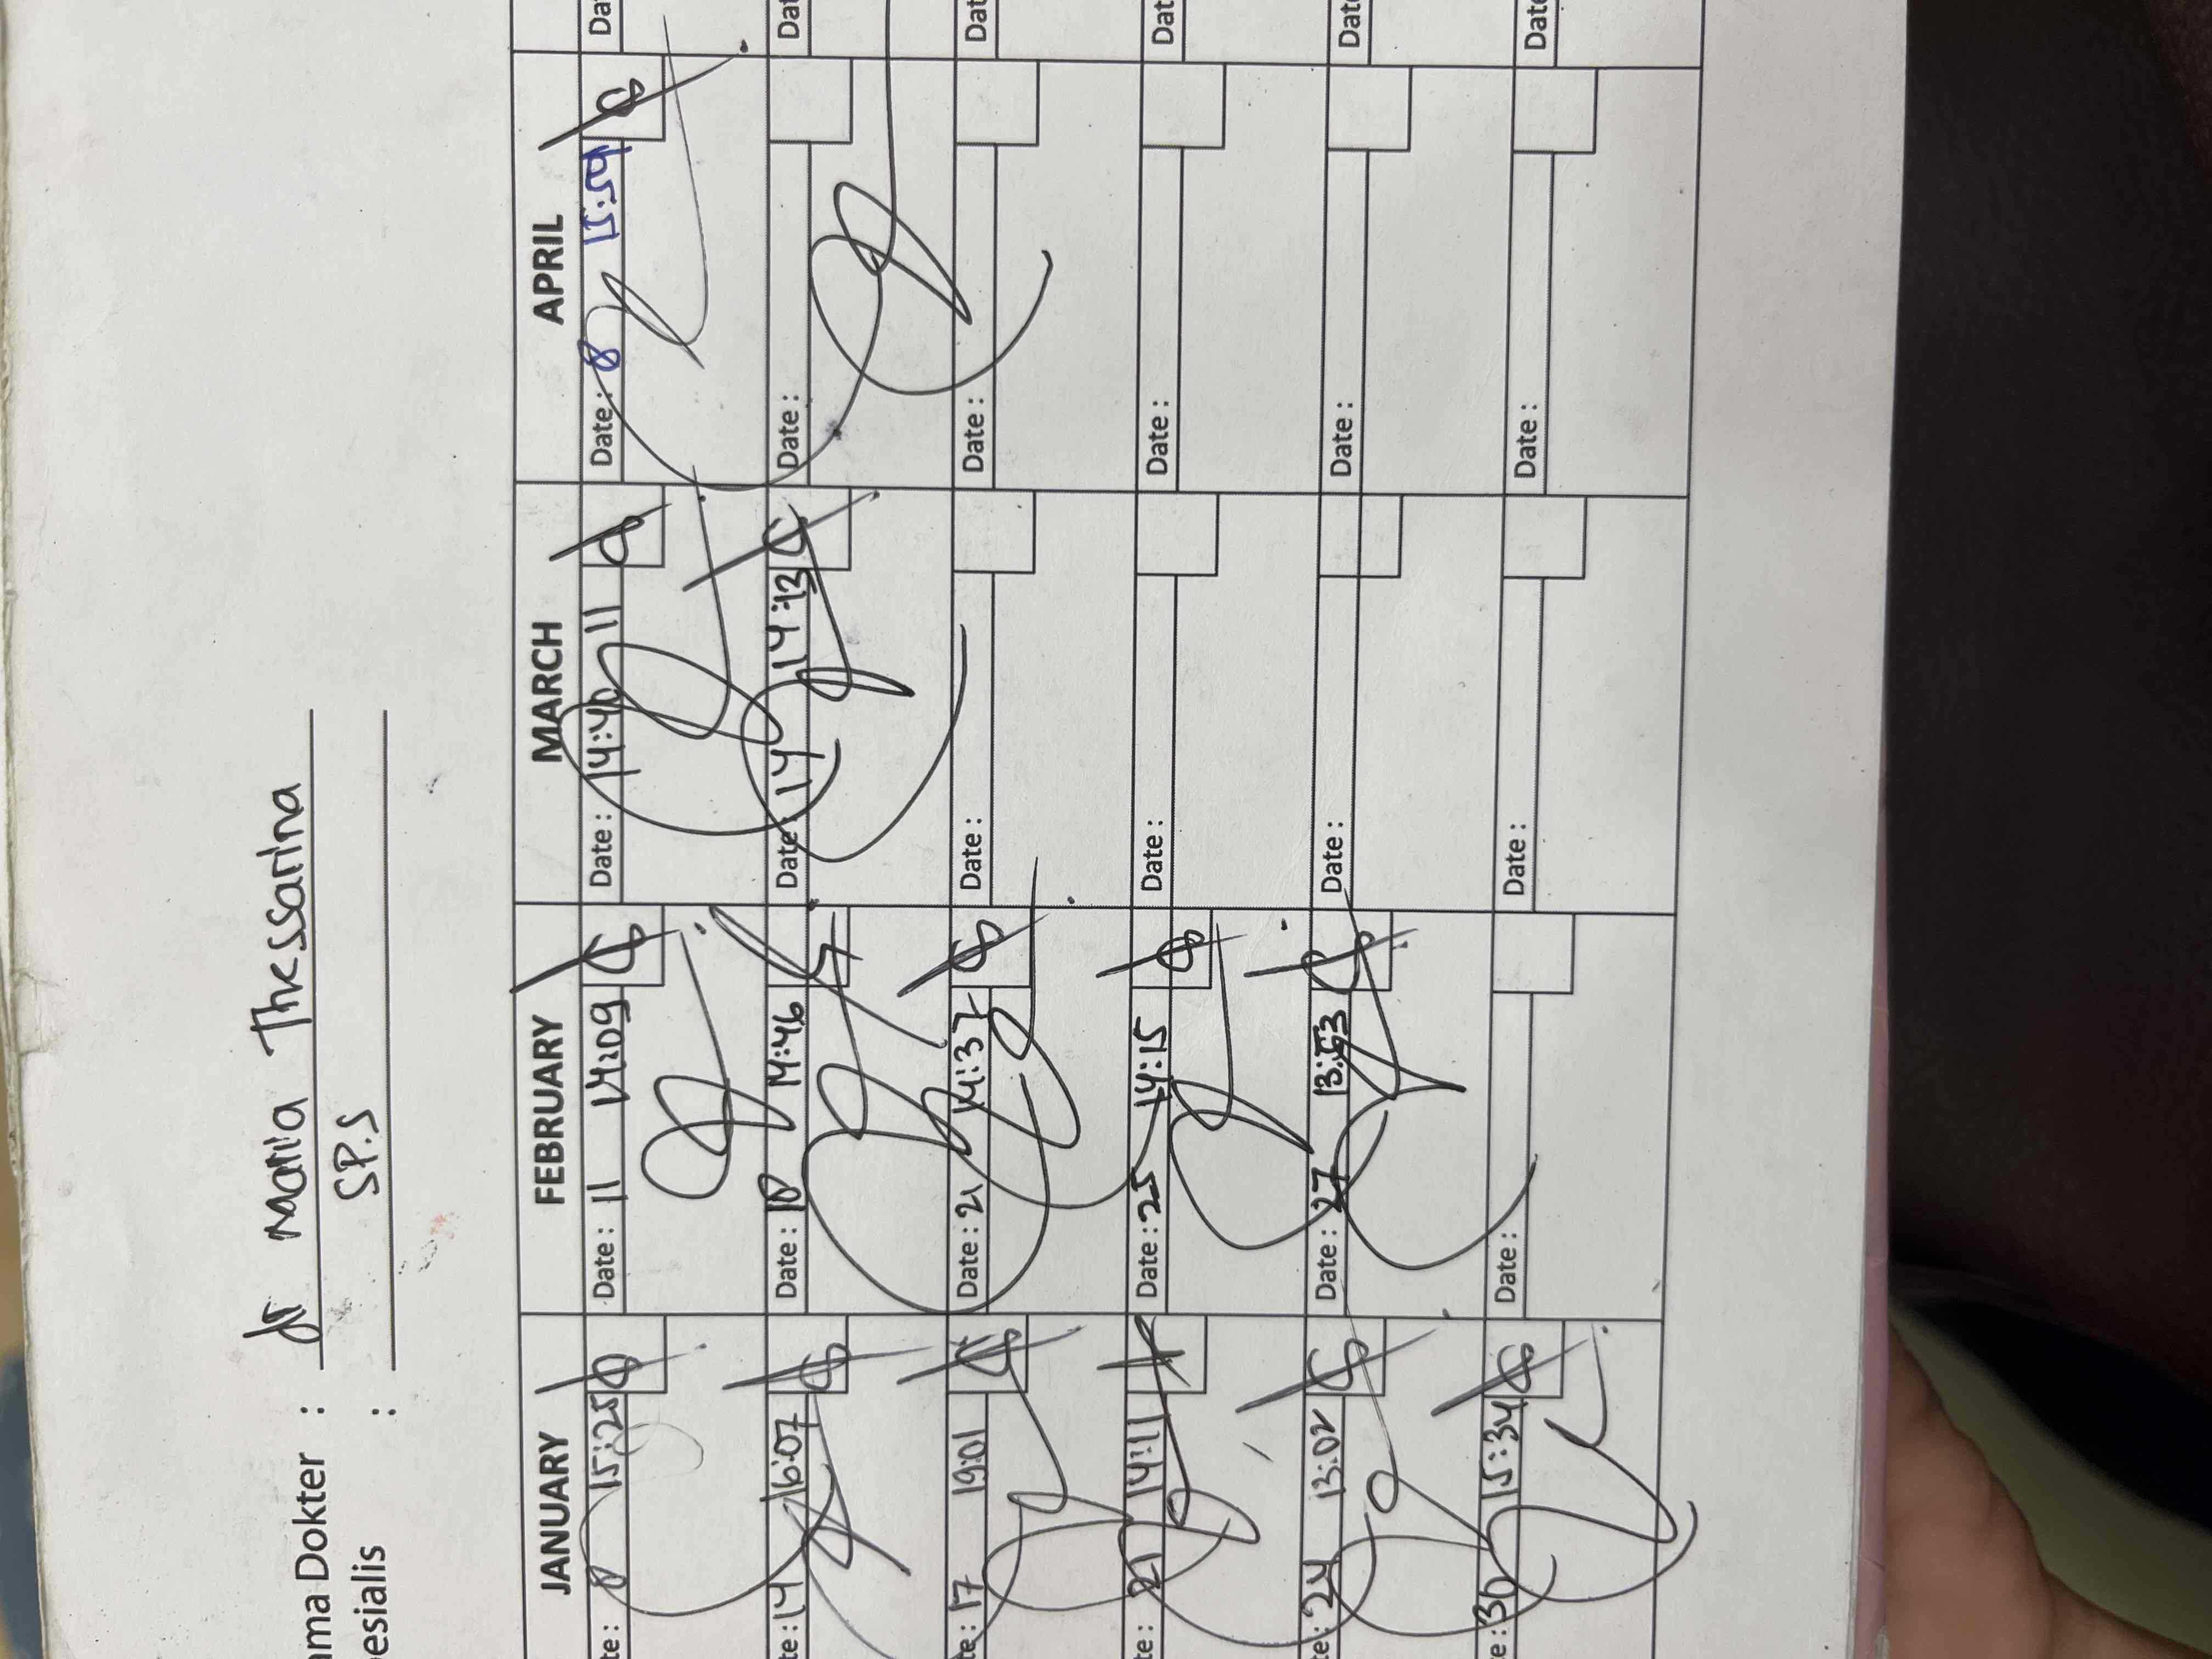 ama Dokter : dr Maria Thessarina
esialis : SP.S
JANUARY FEBRUARY MARCH APRIL
te : 8 15:25 Date : 11 14:09 Date : 14:40 11 Date : 8 15:59 Da
te : 14 16:07 Date : 18 14:46 Date : 14 14:13 Date : Dat
te : 17 19:01 Date : 21 14:37 Date : Date : Dat
te : 21 14:11 Date : 25 14:15 Date : Date : Dat
te : 24 13:02 Date : 27 13:53 Date : Date : Dat
e : 30 15:34 Date : Date : Date : Date